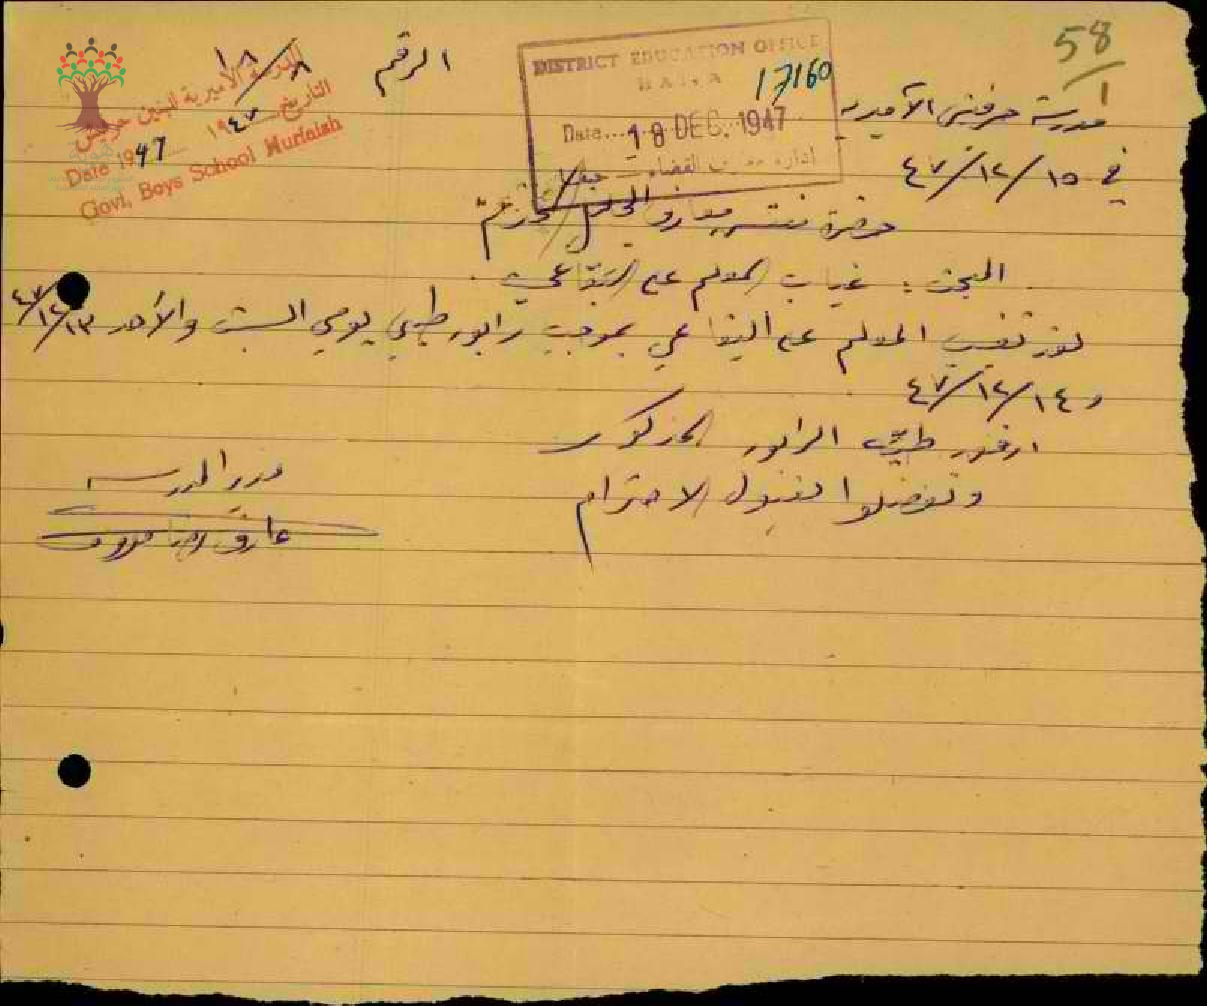 58
1
الرقم ١٨/٨
المدرسة الأميرية للبنين حرفيش
التاريخ ١٩٤٧
Date 1947
Govt. Boys School Hurfaish
DISTRICT EDUCATION OFFICE
HAIFA
17160
Date... 18 DEC. 1947
ادارة معارف القضاء - حيفا
مدرسة حرفيش الأميرية
في ١٥/١٢/٤٧
حضرة مفتش معارف الجليل المحترم
المبحث : غياب المعلم علي البقاعي
لقد تغيب المعلم علي البقاعي بموجب رابور طبي يومي السبت والأحد ١٣/١٢/٤٧
و ١٤/١٢/٤٧
ارفقت طيه الرابور المذكور
وتفضلوا بقبول الاحترام
مدير المدرسة
عارف